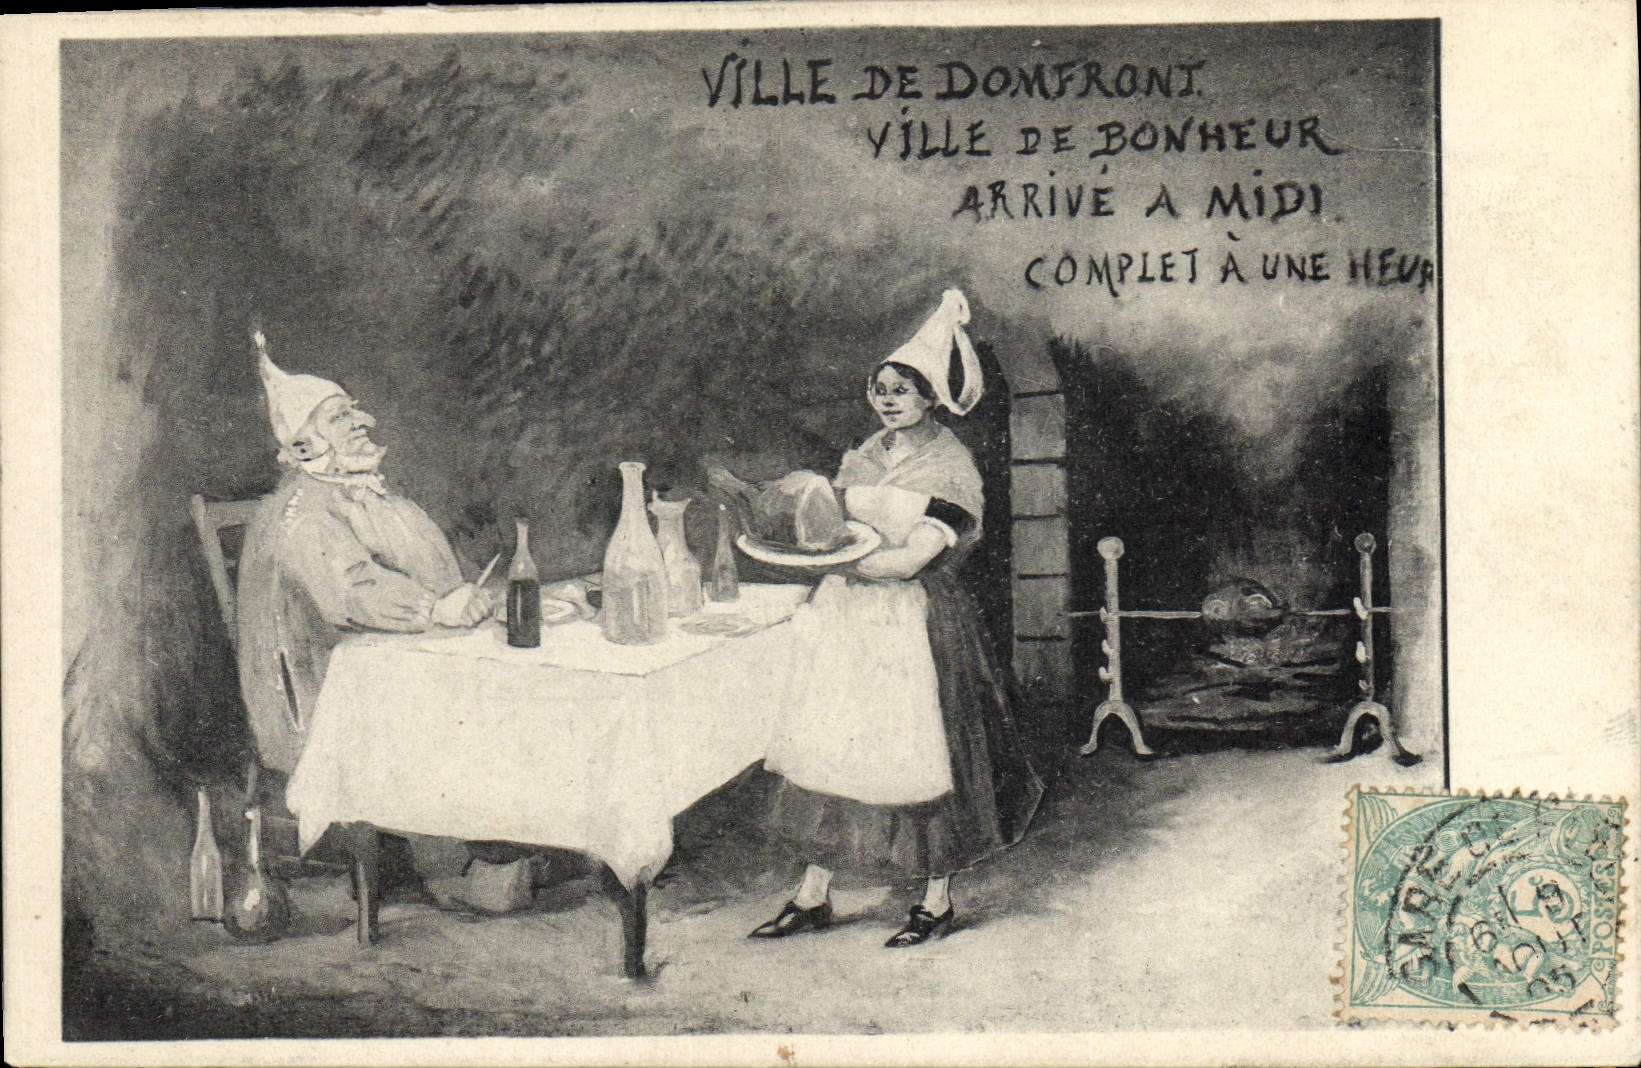 VILLE DE DOMFRONT.
VILLE DE BONHEUR
ARRIVÉ A MIDI.
COMPLET À UNE HEUR
5c
POSTES
GARE DE
05